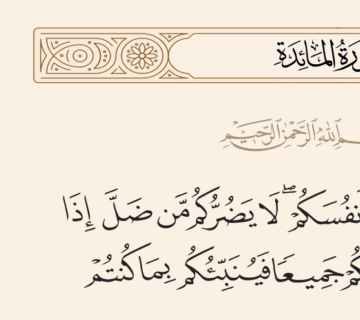 رَةُ المَائِدَة
مِ اللَّهِ الرَّحْمَٰنِ الرَّحِيمِ
نفُسَكُمْ ۖ لَا يَضُرُّكُم مَّن ضَلَّ إِذَا
كُمْ جَمِيعًا فَيُنَبِّئُكُم بِمَا كُنتُمْ